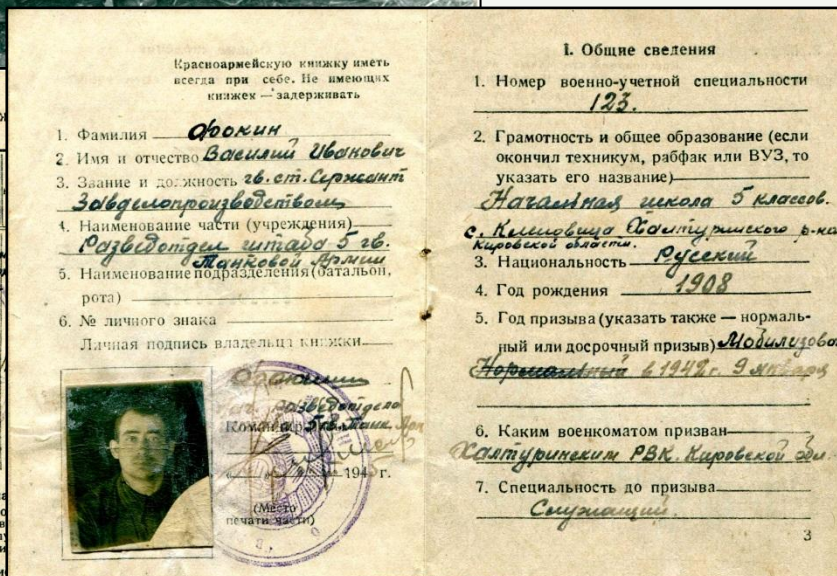 Красноармейскую книжку иметь
всегда при себе. Не имеющих
книжек — задерживать
1. Фамилия Фокин
2. Имя и отчество Василий Иванович
3. Звание и должность гв. ст. Сержант
Завделопроизводством
4. Наименование части (учреждения)
Разведотдел штаба 5 гв.
Танковой Армии
5. Наименование подразделения (батальон,
рота)
6. № личного знака
Личная подпись владельца книжки
Нач. Разведотдела
Командир 5 гв. Танк. Арм
194 г.
(Место
печати части)
I. Общие сведения
1. Номер военно-учетной специальности
123.
2. Грамотность и общее образование (если
окончил техникум, рабфак или ВУЗ, то
указать его название)
Начальная школа 5 классов.
с. Халтуринского р-на
Кировской области.
3. Национальность Русский
4. Год рождения 1908
5. Год призыва (указать также — нормаль-
ный или досрочный призыв) Мобилизова
Нормальный в 1942 г. 9 января
6. Каким военкоматом призван
Халтуринским РВК. Кировской обл.
7. Специальность до призыва
Служащий.
3